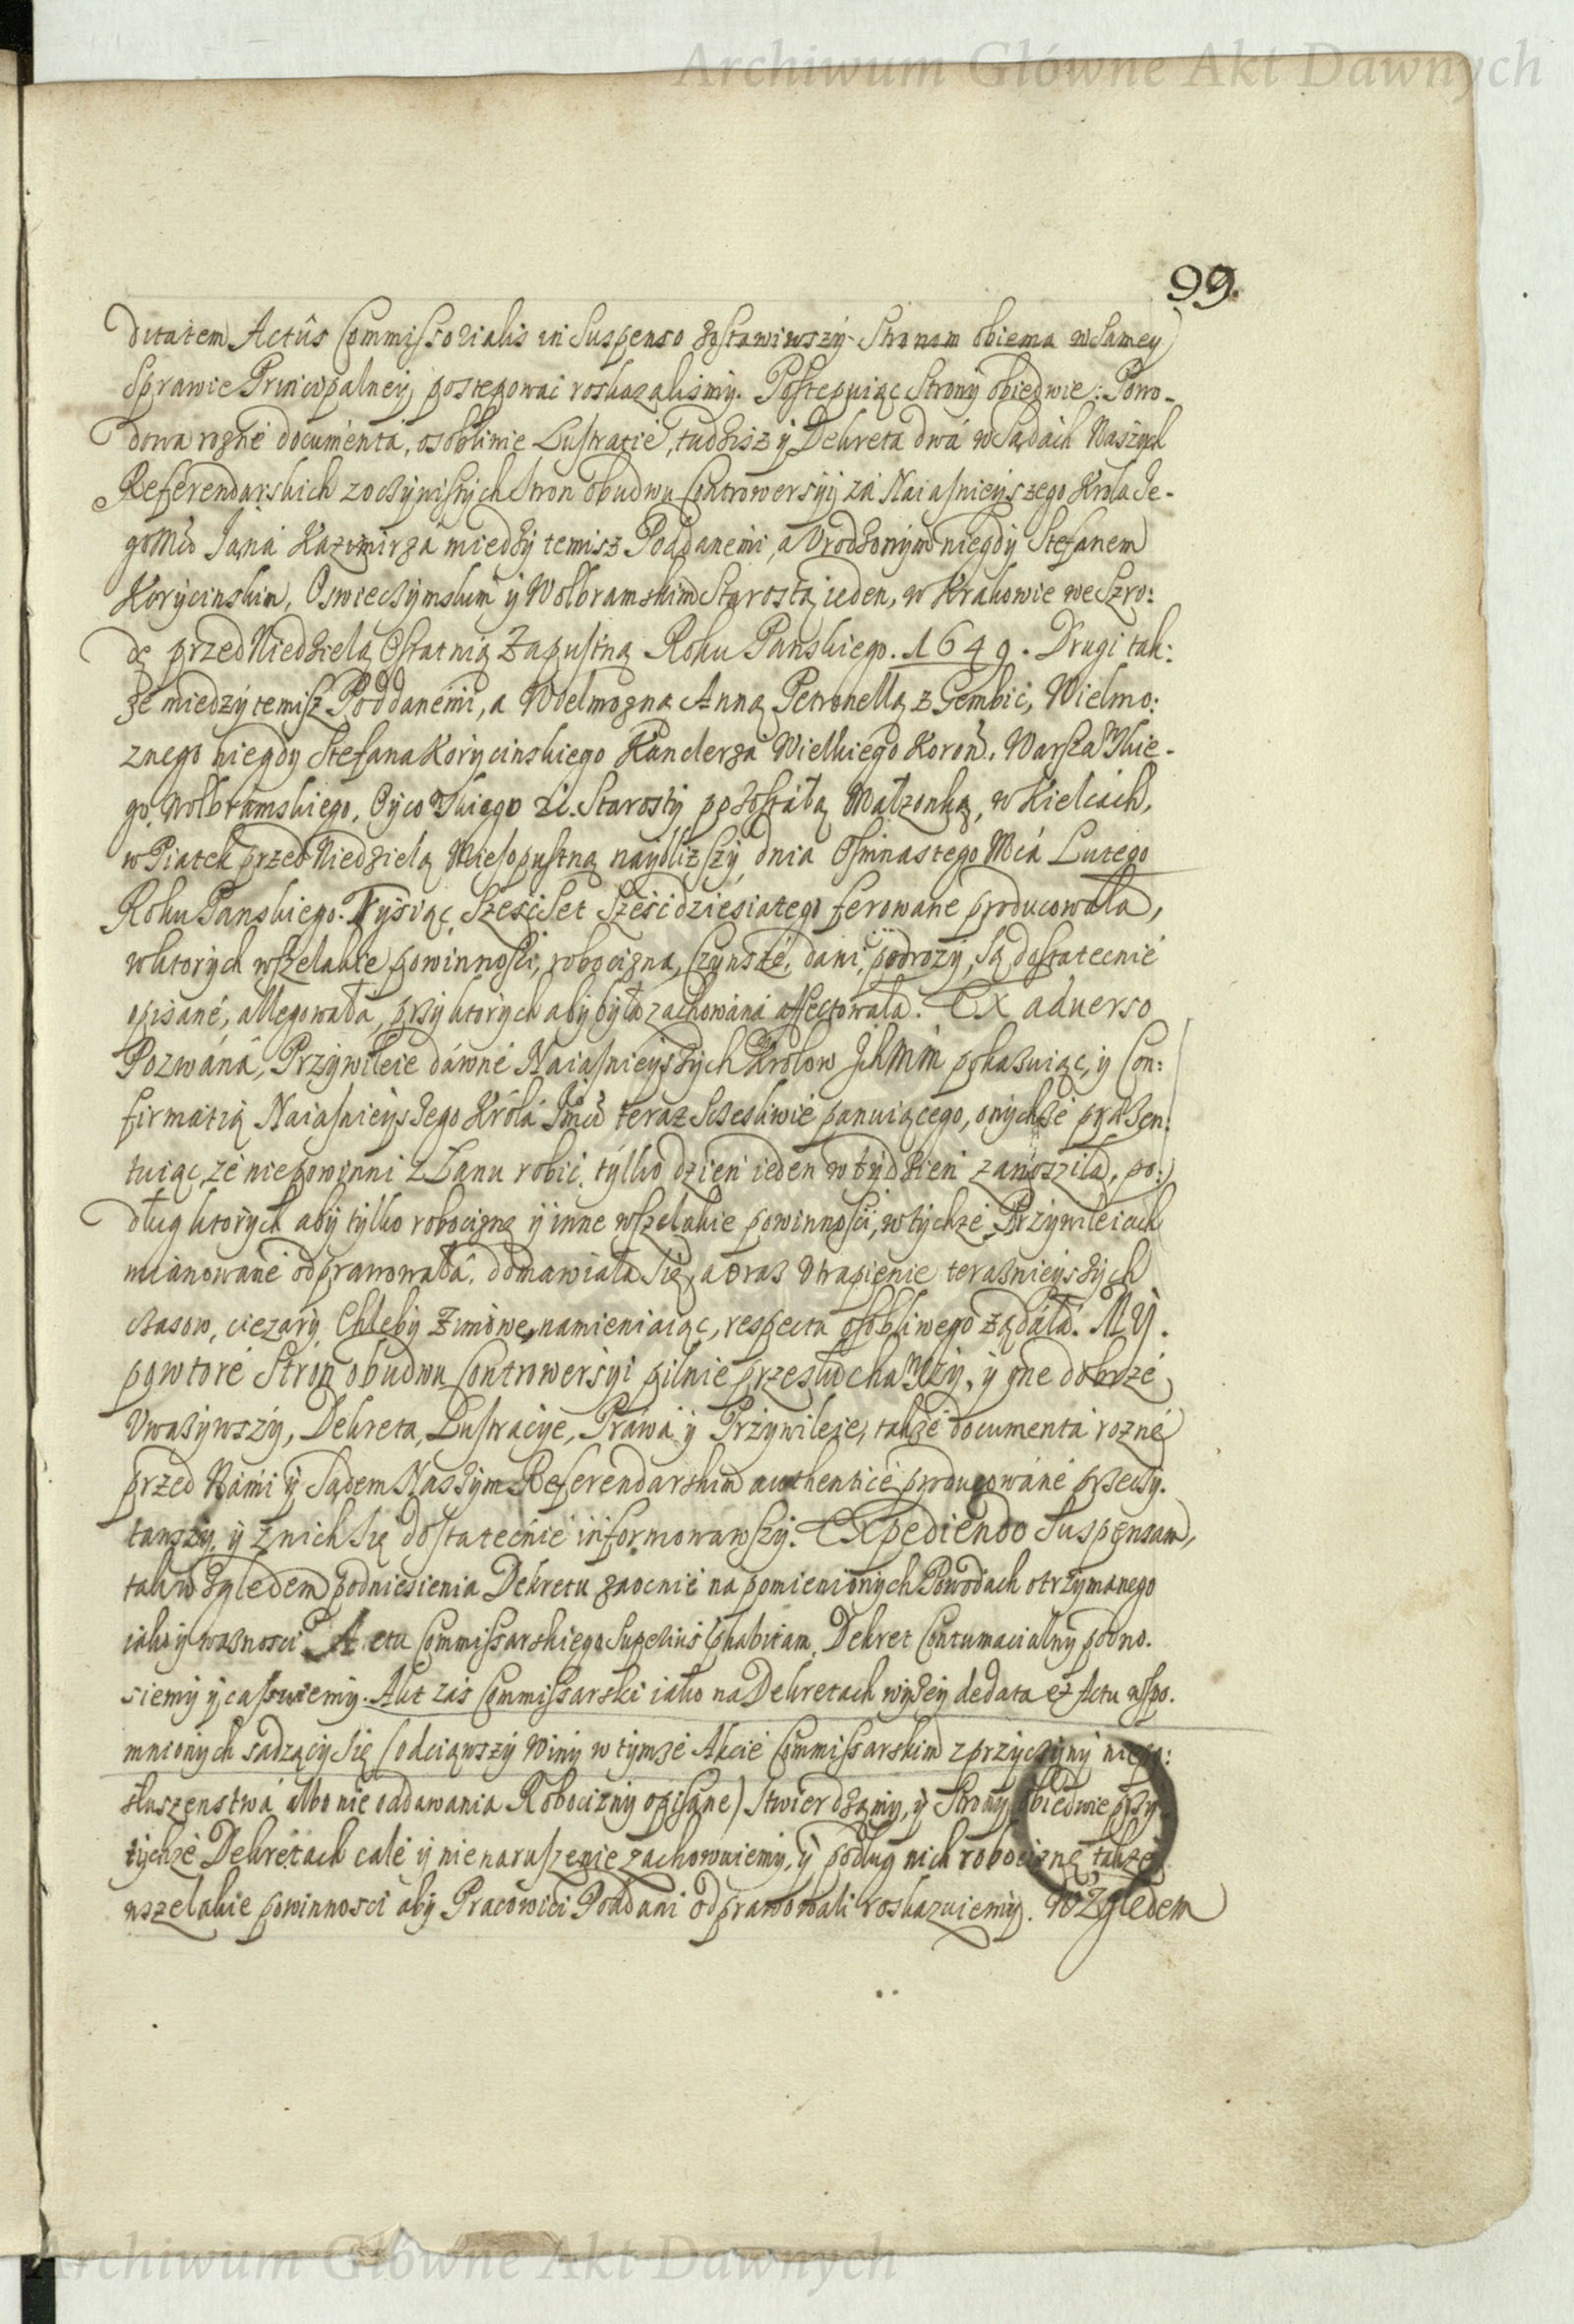 Archiwum Główne Akt Dawnych
99.
ditatem Actûs Commissorialis in Suspenso zostawiwszy Stronom obiema w samey
Sprawie Principalney postępować roskazaliśmy. Postępuiąc Strony obiedwie: Powo-
dowa rozne documenta, osobliwie Lustracie, tudzisz y Dekreta dwá w Sądách Naszych
Referendarskich z oczywistych Stron obudwu Controwersyi zá Naiasnieyszego Krola Je-
go Mci Janá Kazimirza między temisz Poddanemi, a Vrodzonym niegdy Stefanem
Korycinskim, Oswieczymskim y Wolbramskim Starostą ieden, w Krakowie we Szro:
dę przed Niedzielą Ostatnią Zapustną Roku Panskiego. 1649. Drugi tak:
ze miedzy temisz Poddanemi, a Wielmozną Anną Petronellą z Gembic, Wielmo:
znego niegdy Stefana Korycinskiego Kanclerza Wielkiego Koron. Warszawskie-
go, Wolbramskiego, Oycowskiego zc. Starosty pozostałą Małzonką, w Kielcách,
w Piątek przed Niedzielą Miesopustną naybliższy, dnia Osmnastego Mcá Lutego
Roku Panskiego. Tysiąc Szesc Set Szescdziesiątego ferowane producowała,
w ktorych wszelakie powinnosci, robocizna, Czynsze, dani, podrozy, są dostatecnie
opisané, allegowała, przy ktorych aby była zachowána affectowała. Ex aduerso
Pozwáná, Przywileie dáwné Naiasnieyszych Krolow Ich Mm pokazuiąc, y Con:
firmatią Naiasnieyszego Krolá Jmci teraz sczesliwie panuiącego, onychze prezen:
tuiąc, ze niepowinni z Łanu robić, tylko dzień ieden w tydzień zanosziła, po:
dług ktorych aby tylko robociznę y inne wszelakie powinnosci, w tychze Przywileiach
mianowané odprawowała, domawiała się, a oraz Vtrapienie teraznieyszych
czasow, cięzary, Chleby Zimowe, namieniaiąc, respectu osobliwego ządáłá. MY.
powtoré Stron obudwu Controwersyi pilnie przesłuchawszy, y one dobrzé
Vwazywszy, Dekreta, Lustracye, Prawá y Przywileie, takze documenta rozné
przed Námi y Sądem Naszym Referendarskim authenticé producowáné przeczy.
tawszy, y z nich się dostatecnie informowawszy. Expediendo Suspensam,
tak względem podniesienia Dekretu zaocnie na pomienionych Powodach otrzymanego
iako y waznosci Actu Commissarskiego Superius habitam, Dekret Contumacialny podno.
siemy y cassuiemy. Akt zás Commissarski iako na Dekretach wyzey dedata et Actu wspo.
mnionych sadzący się (odciąwszy Winy w tymze Akcie Commissarskim z przyczyny niepo:
słuszenstwá albo nie oddawania Robocizny opisane) stwierdzamy, y Strony obiedwie przy
tychze Dekretach całe y nienaruszenie zachowuiemy, y podług nich robociznę takze
wszelakie powinnosci aby Pracowici Poddani odprawowali roskazuiemy. Względem
Archiwum Główne Akt Dawnych